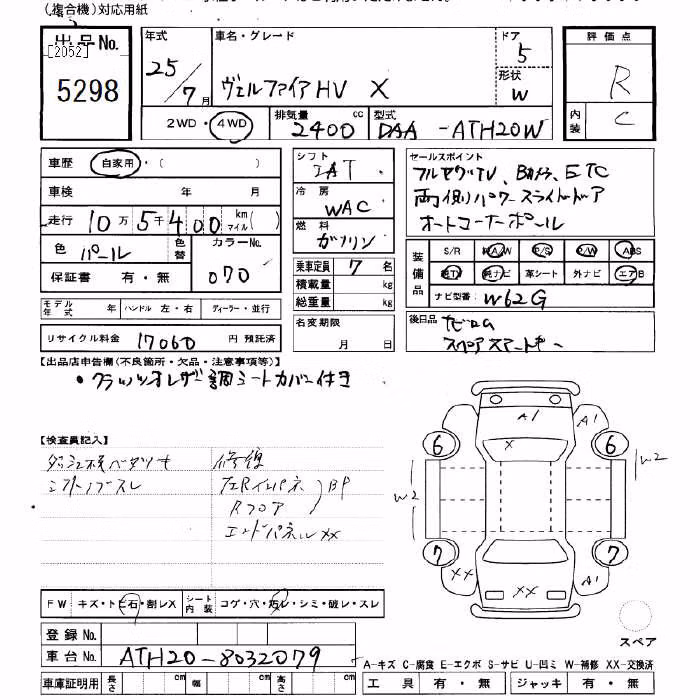 (複合機)対応用紙
出品No.
[2052]
5298
年式
25/7月
車名・グレード
ヴェルファイアHV X
ドア
5
形状
W
評価点
R
内装
C
2WD・4WD
排気量
2400cc
型式
DAA-ATH20W
車歴 自家用・( )
車検 年 月
走行 10万5千400 km マイル( )
色 パール 色替
カラーNo.
070
保証書 有・無
モデル年式 年 ハンドル 左・右 ディーラー・並行
リサイクル料金 17060 円 預託済
シフト
IAT
冷房
WAC
燃料
ガソリン
乗車定員 7 名
積載量 kg
総重量 kg
名変期限
月 日
セールスポイント
フルセグTV、Bカメラ、ETC
両側パワースライドドア
オートコーナーポール
装備品
S/R 純A/W P/S P/W ABS
純TV 純ナビ 革シート 外ナビ エアB
ナビ型番 W62G
後日品
ナビロム
スペアスマートキー
【出品店申告欄(不良箇所・欠品・注意事項等)】
・クラッツィオレザー調シートカバー付き
【検査員記入】
修復
シフトノブスレ
Rフロア
BP
エンドパネルXX
FW キズ・トビ石・割レX
シート内装 コゲ・穴・汚レ・シミ・破レ・スレ
登録No.
車台No. ATH20-8032079
車庫証明用 長さ cm 幅 cm 高さ cm
A1
A1
X
6
6
W2
W2
7
7
XX
XX
A1
スペア
A-キズ C-腐食 E-エクボ S-サビ U-凹ミ W-補修 XX-交換済
工具 有・無 ジャッキ 有・無